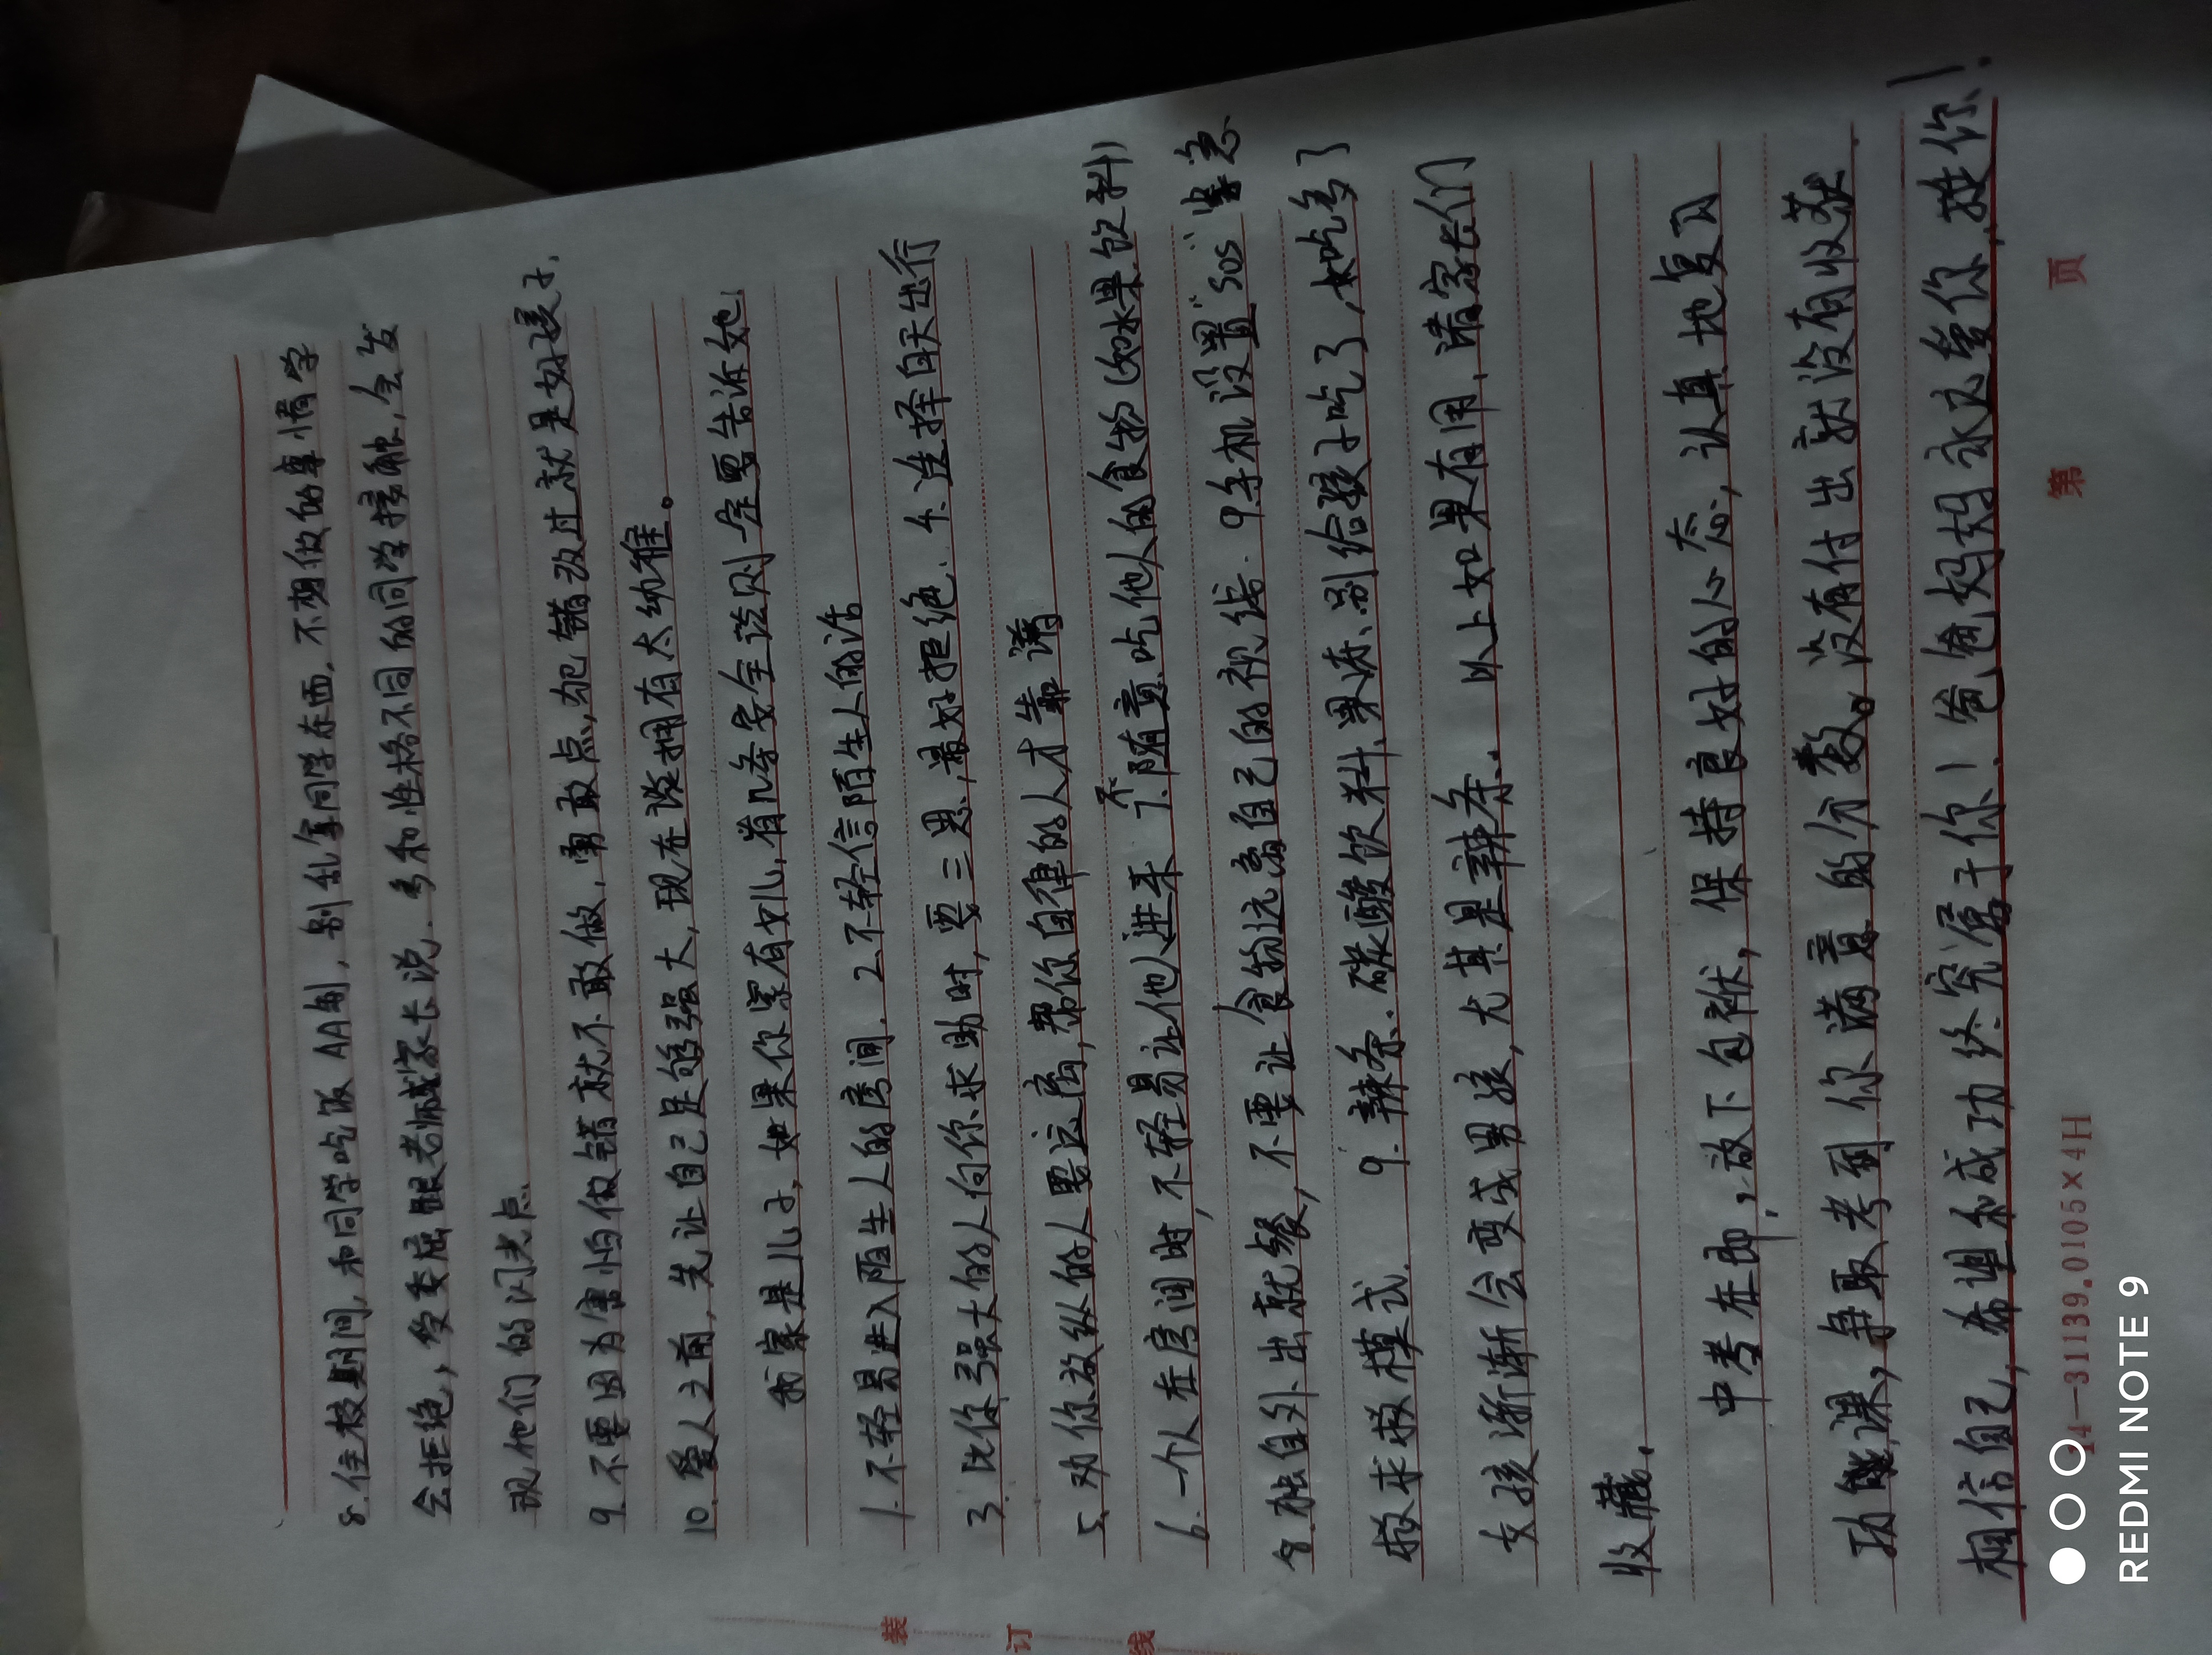 8.住校期间,和同学吃饭AA制,别乱拿同学东西,不想做的事情学
会拒绝,受委屈跟老师或家长说.多和性格不同的同学接触,会发
现他们的闪光点.
9.不要因为害怕做错就不敢做,勇敢点,犯错改过就是好孩子.
10.爱人之前,先让自己足够强大,现在谈拥有太幼稚。
我家是儿子,如果你家有女儿,有几条安全法则一定要告诉她!
1.不轻易进入陌生人的房间. 2.不轻信陌生人的话
3.比你强大的人向你求助时,要三思,最好拒绝. 4.选择白天出行
5.劝你放纵的人要远离,帮你自律的人才靠谱
6.一个人在房间时,不轻易让他人进来 7.不随意吃他人的食物(如水果饮料)
8.独自外出就餐,不要让食物远离自己的视线. 9.手机设置"SOS"紧急
救求救模式. 9.辣条.碳酸饮料,果冻.别给孩子吃了,如吃多了
女孩渐渐会变成男孩,尤其是辣条. 以上如果有用,请家长们
收藏.
中考在即,放下包袱,保持良好的心态,认真地复习
功课,争取考到你满意的分数。没有付出就没有收获.
相信自己,希望和成功终究属于你!爸爸妈妈永远爱你,挺你!.
装
订
线
14—31139.0105×4H
第 页
REDMI NOTE 9